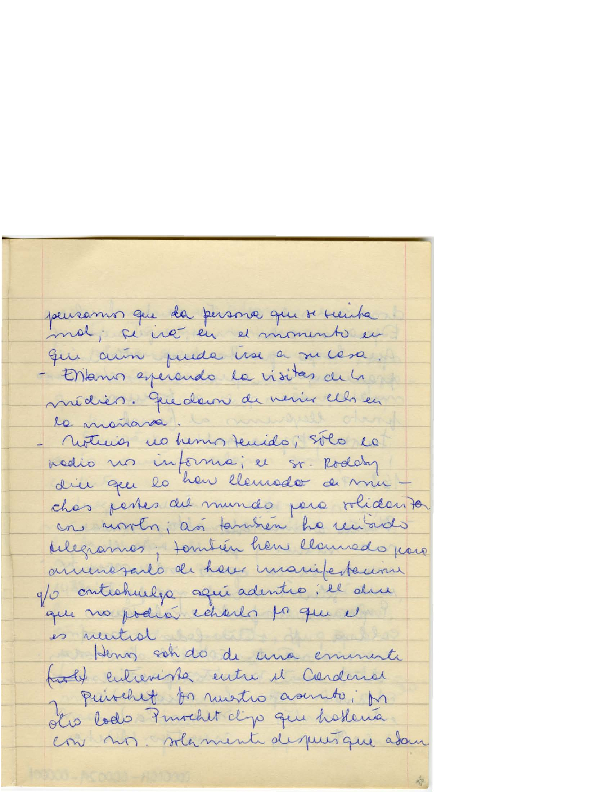 pensamos que la persona que se sienta
mal, se irá en el momento en
que aún pueda irse a su casa.
- Estamos esperando la visitas de ls
médicos. Quedaron de venir ells en
la mañana.
- Noticias no hemos tenido, sólo la
radio nos informa; el sr. Roddy
dice que lo han llamado de mu-
chas partes del mundo para solidarizar
con nosotros; así también ha recibido
telegramas, también han llamado para
amenazarlo de hacer manifestaciones
y/o contrahuelga aquí adentro; él dice
que no podrá echarlos por que el
es neutral
Hemos sabido de una
entrevista entre el Cardenal
y Pinochet por nuestro asunto; por
otro lado Pinochet dijo que hablaría
con nos. solamente después que